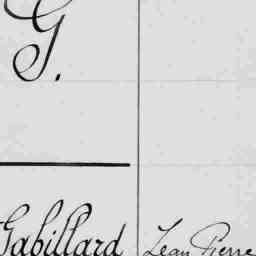 G.
Gabillard Jean Pierre